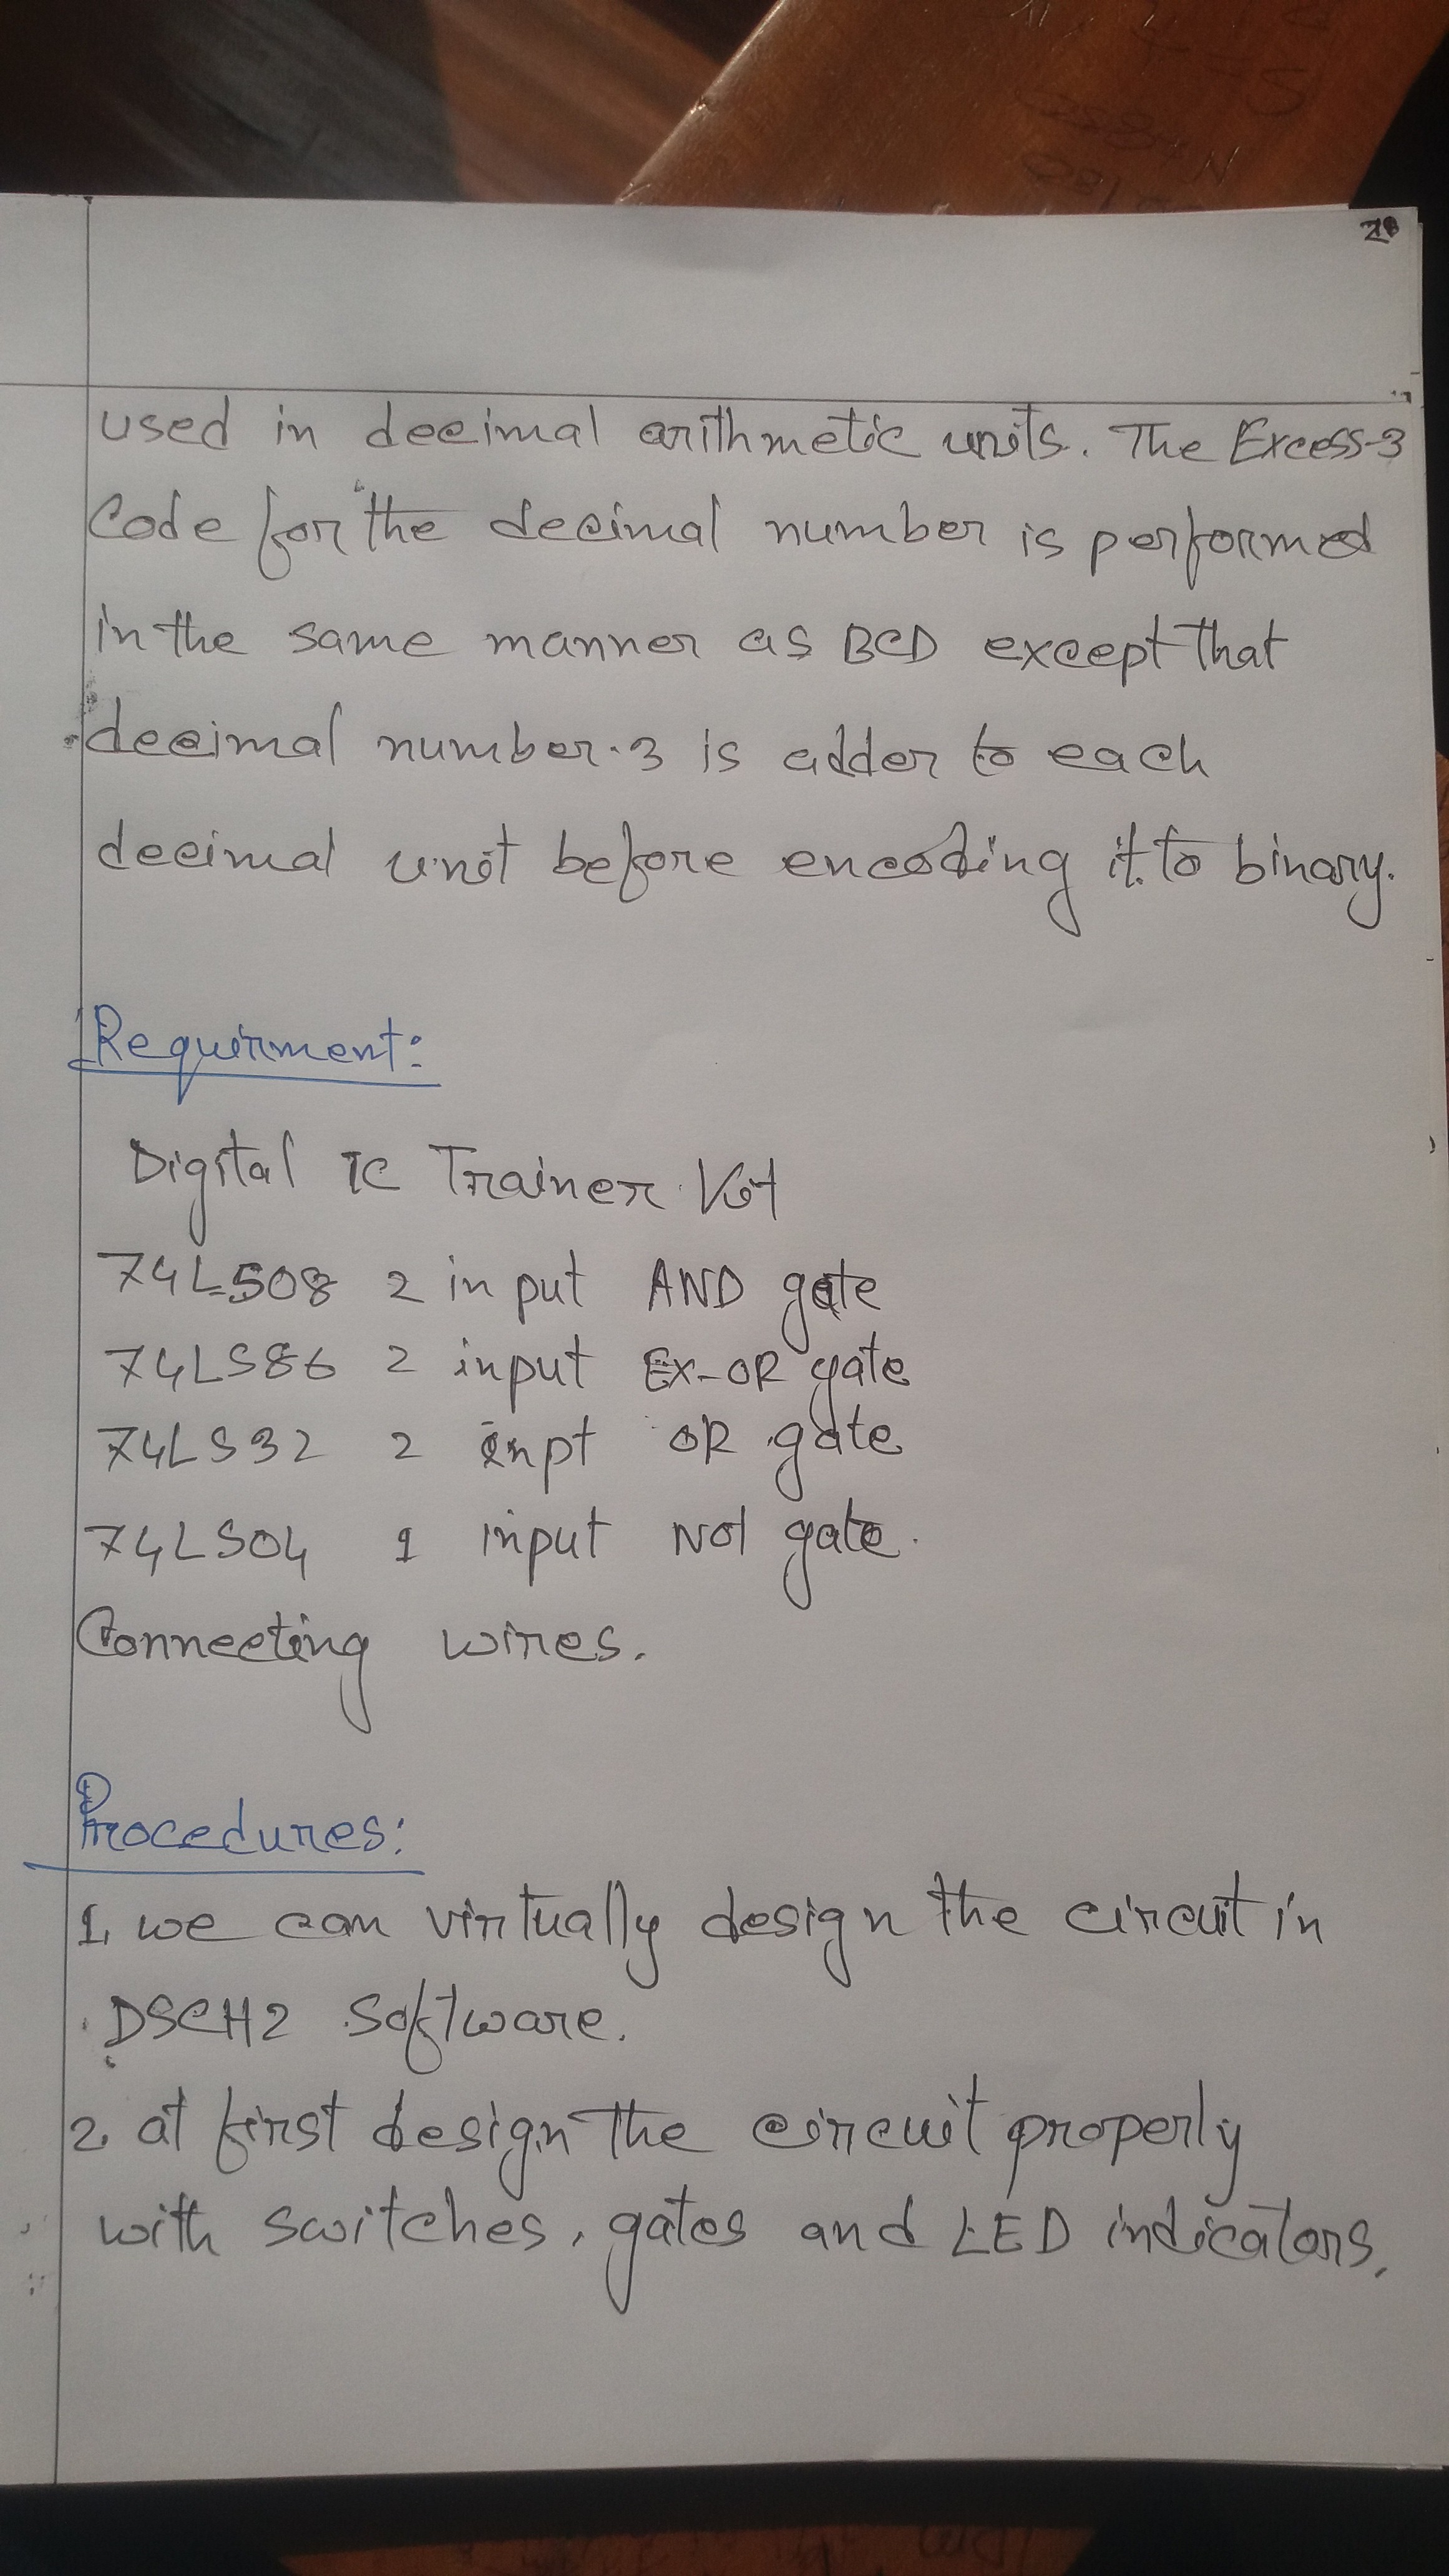 used in decimal arithmetic units. The Excess-3
Code for the decimal number is performed
in the same manner as BCD except that
decimal number 3 is adder to each
decimal unit before encoding it to binary.
Requirment:
Digital IC Trainer Kit
74LS08 2 input AND gate
74LS86 2 input EX-OR gate
74LS32 2 inpt OR gate
74LS04 1 input Not gate.
Connecting wires.
Procedures:
1. we can virtually design the circuit in
DSCH2 Software.
2. at first design the circuit properly
with switches, gates and LED indicators.